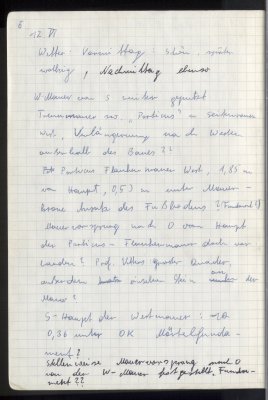 6
12. VI
Wetter: Vormittag: schön, später
wolkig, Nachmittag ebenso
W-Mauer von S weiter geputzt
Trennmauer zw. "Porticus" u.
West, Verlängerung nach Westen
außerhalb des Baues??
Porticus Flankenmauer West, 1,85 m
von Haupt, 0,53 m unter Mauer-
krone Ansatz des Fußbodens? (Fundament?)
Mauervorsprung nach O vom Haupt
der Porticus-Flankenmauer doch vor-
handen? Prof. Vetters großer Quader,
außerdem ansehen Stein an der
Mauer?
S-Haupt der Westmauer:
0,36 unter OK Mörtelfunda-
ment?
Stellenweise Mauervorsprung nach O
von der W-Mauer festgestellt. Funda-
ment??